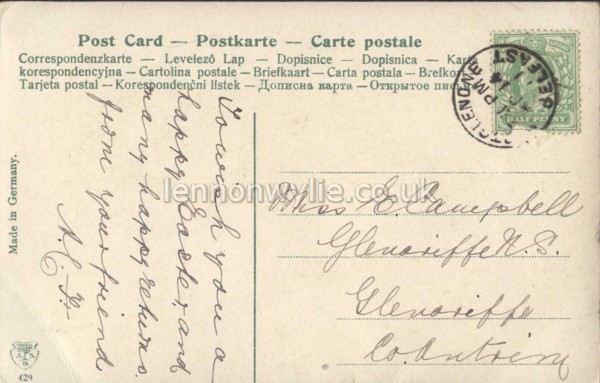 Post Card — Postkarte — Carte postale
Correspondenzkarte — Levelező Lap — Dopisnice — Dopisnica —
korespondencyjna — Cartolina postale — Briefkaart — Carta postala —
Tarjeta postal — Korespondenční lístek — Дописна карта — Открытое
HALF PENNY
GLEN
BELFAST
PM
Made in Germany.
To wish you a
happy Easter, and
many happy returns.
from your friend
lennonwylie.co.uk
Miss E. Campbell
Glenariffe N.S.
Glenariffe
Co Antrim
429